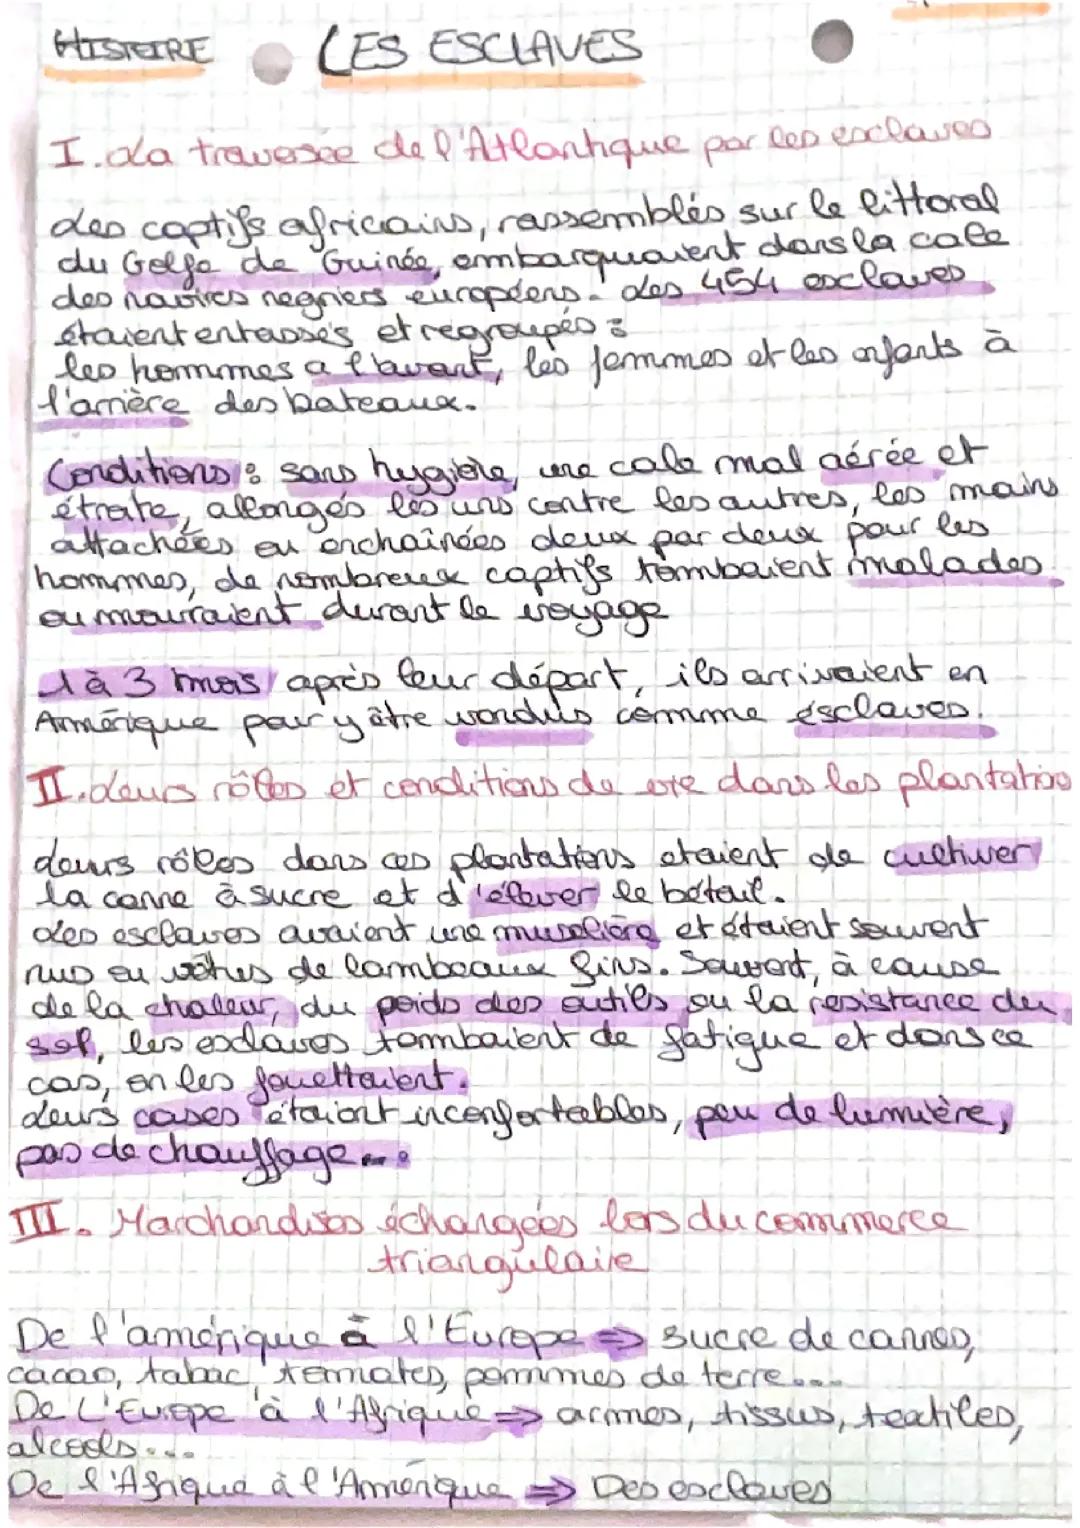 HISTOIRE LES ESCLAVES
I. La traversée de l'Atlantique par les esclaves
des captifs africains, rassemblés sur le littoral
du Golfe de Guinée, embarquaient dans la cale
des navires negriers européens. Les 454 esclaves
étaient entassés et regroupés :
les hommes a l'avant, les femmes et les enfants à
l'arrière des bateaux.
Conditions : sans hygiène, une cale mal aérée et
étroite, allongés les uns contre les autres, les mains
attachées ou enchaînées deux par deux pour les
hommes, de nombreux captifs tombaient malades
ou mouraient durant le voyage
1 à 3 mois après leur départ, ils arrivaient en
Amérique pour y être vendus comme esclaves.
II. Leurs rôles et conditions de vie dans les plantations
Leurs rôles dans ces plantations etaient de cultiver
la canne à sucre et d'élever le bétail.
Les esclaves avaient une muselière et étaient souvent
nus ou vêtus de lambeaux fins. Souvent, à cause
de la chaleur, du poids des outils ou la resistance du
sol, les esclaves tombaient de fatigue et dans ce
cas, on les fouettaient.
Leurs cases étaient inconfortables, peu de lumière,
pas de chauffage...
III. Marchandises échangées lors du commerce
triangulaire
De l'amérique à l'Europe ⇒ sucre de cannes,
cacao, tabac, tomates, pommes de terre...
De L'Europe à l'Afrique ⇒ armes, tissus, textiles,
alcools...
De l'Afrique à l'Amérique ⇒ Des esclaves